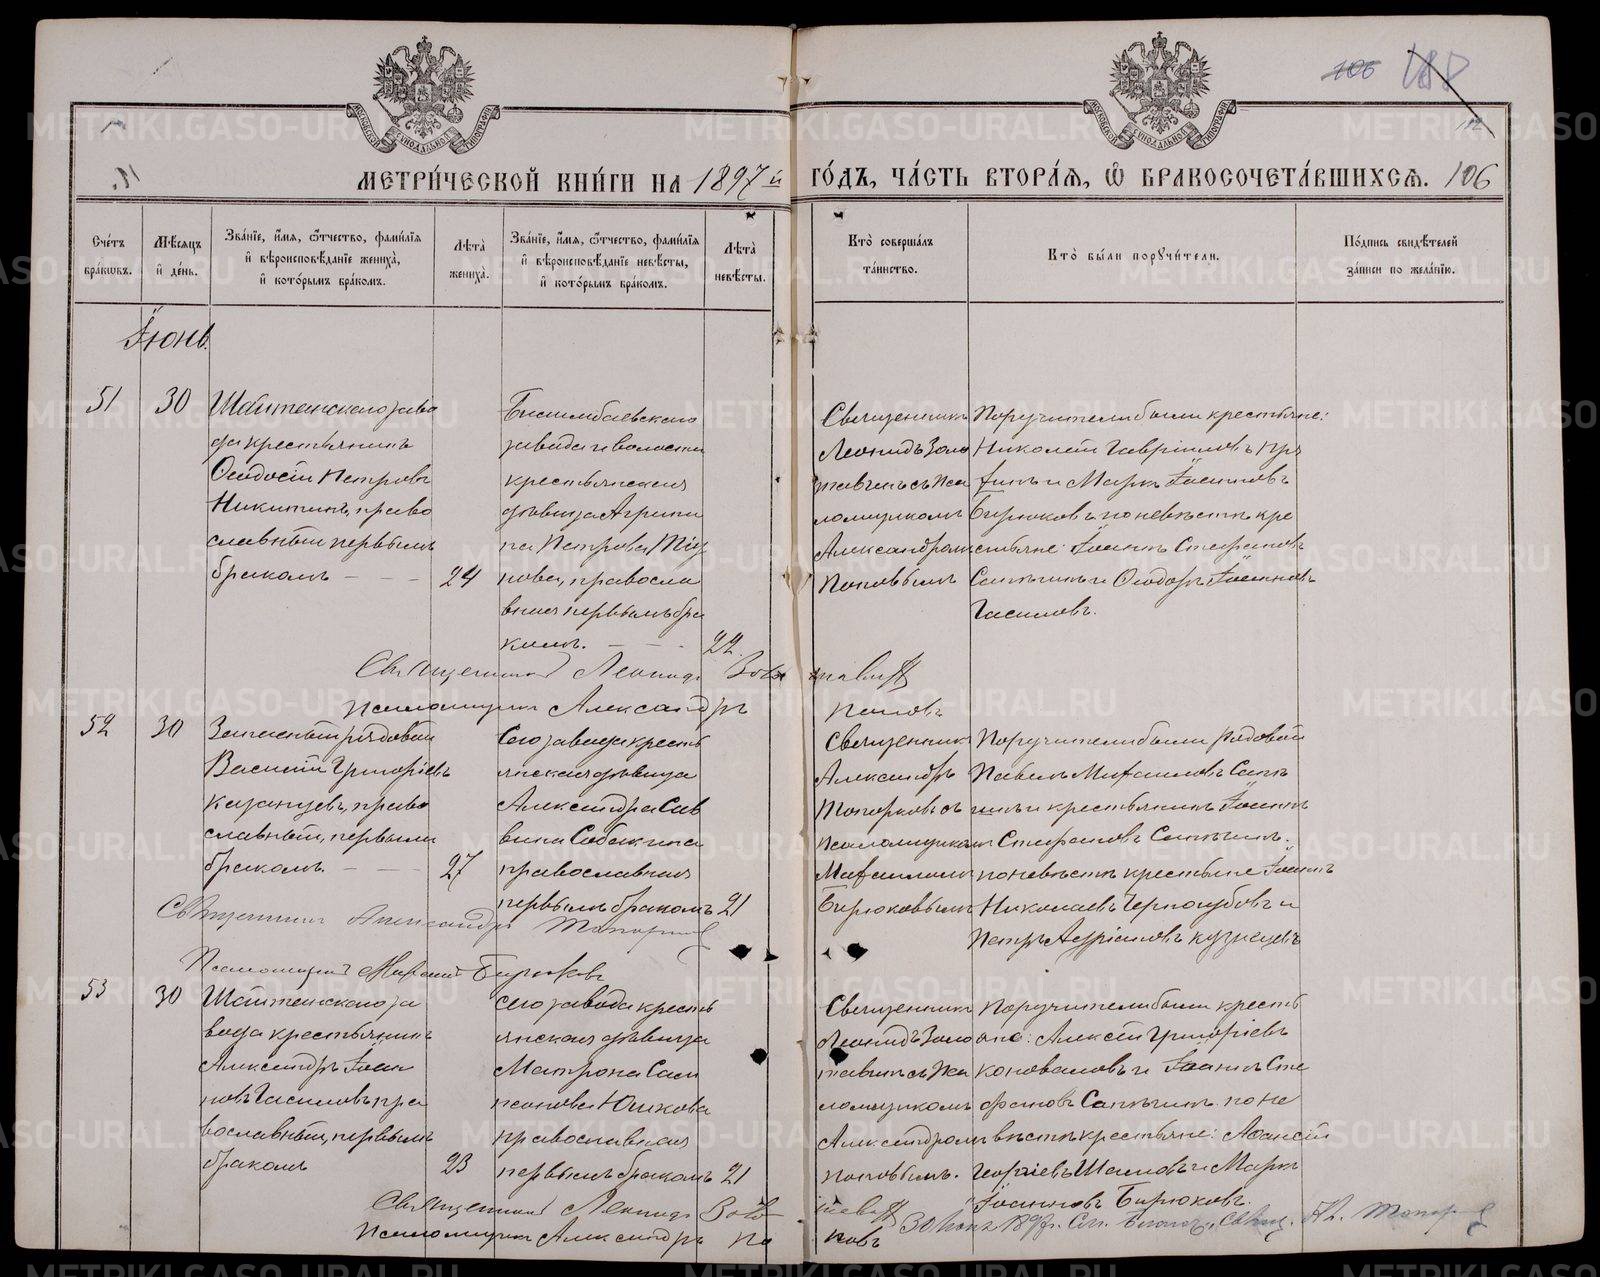 106
112
МЕТРИ́ЧЕСКОЙ КНИ́ГИ НА 1897 й ГО́ДЪ, ЧА́СТЬ ВТОРА́Я, Ѿ БРАКОСОЧЕТА́ВШИХСЯ. 106
Сче́тъ бра́кѡвъ.
Мѣ́сяцъ и҆ де́нь.
Зва́нїе, и҆́мя, ѻ҆́тчество, фами́лїя и҆ вѣроисповѣ́данїе жениха̀, и҆ кото́рымъ бра́комъ.
Лѣ́та̀ жениха̀.
Зва́нїе, и҆́мя, ѻ҆́тчество, фами́лїя и҆ вѣроисповѣ́данїе невѣ́сты, и҆ кото́рымъ бра́комъ.
Лѣ́та̀ невѣ́сты.
Кто̀ соверша́лъ та́инство.
Кто̀ бы́ли порꙋчи́тели.
По́дпись свидѣ́телей за́писи по жела́нїю.
Іюнь.
51
30
Шайтанскаго заво
да крестьянинъ
Ѳеодосій Петровъ
Никитинъ, право
славный первымъ
бракомъ
24
Билимбаевскаго
завода и волости
крестьянская
дѣвица Агрипи
на Петрова
нова, правосла
вная первымъ бра
комъ.
22
Священникъ
Леонидъ Золо
тавинъ съ Пса
ломщикомъ
Александромъ
Поповымъ
Поручители были крестьяне:
Николай Гавріиловъ Кря
и Маркъ Іоанновъ
Бирюковъ по невѣстѣ кре
стьяне: Іоаннъ Стефановъ
Сапѣгинъ и Ѳеодоръ Іоанновъ
Гасиловъ.
Священникъ Леонидъ Золотавинъ
Псаломщикъ Александръ Поповъ
52
30
Запасный рядовой
Василій Григоріевъ
Казанцевъ, право
славный, первымъ
бракомъ.
27
Сего завода кресть
янская дѣвица
Александра Сав
вина Собакина
православная
первымъ бракомъ
21
Священникъ
Александръ
Топорковъ съ
псаломщикомъ
Михаиломъ
Бирюковымъ
Поручители были рядовой
Павелъ Михаиловъ Сапѣ
гинъ и крестьянинъ Іоаннъ
Стефановъ Сапѣгинъ.
по невѣстѣ крестьяне Іоаннъ
Николаевъ Черноzубовъ и
Петръ Адріановъ Кузнецовъ
Священникъ Александръ Топорковъ
Псаломщикъ Михаилъ Бирюковъ
53
30
Шайтанскаго за
вода крестьянинъ
Александръ Іоан
новъ Гасиловъ пра
вославный, первымъ
бракомъ
23
сего завода кресть
янская дѣвица
Матрона Сам
псонова Юшкова
православная
первымъ бракомъ
21
Священникъ
Леонидъ Золо
тавинъ съ Пса
ломщикомъ
Александромъ
Поповымъ.
Поручители были кресть
яне: Алексѣй Григоріевъ
Коноваловъ и Іоаннъ Сте
фановъ Сапѣгинъ. по не
вѣстѣ крестьяне:
Георгіевъ и Маркъ
Іоанновъ Бирюковъ.
Священникъ Леонидъ Золотавинъ
Псаломщикъ Александръ Поповъ
30 1897 г.